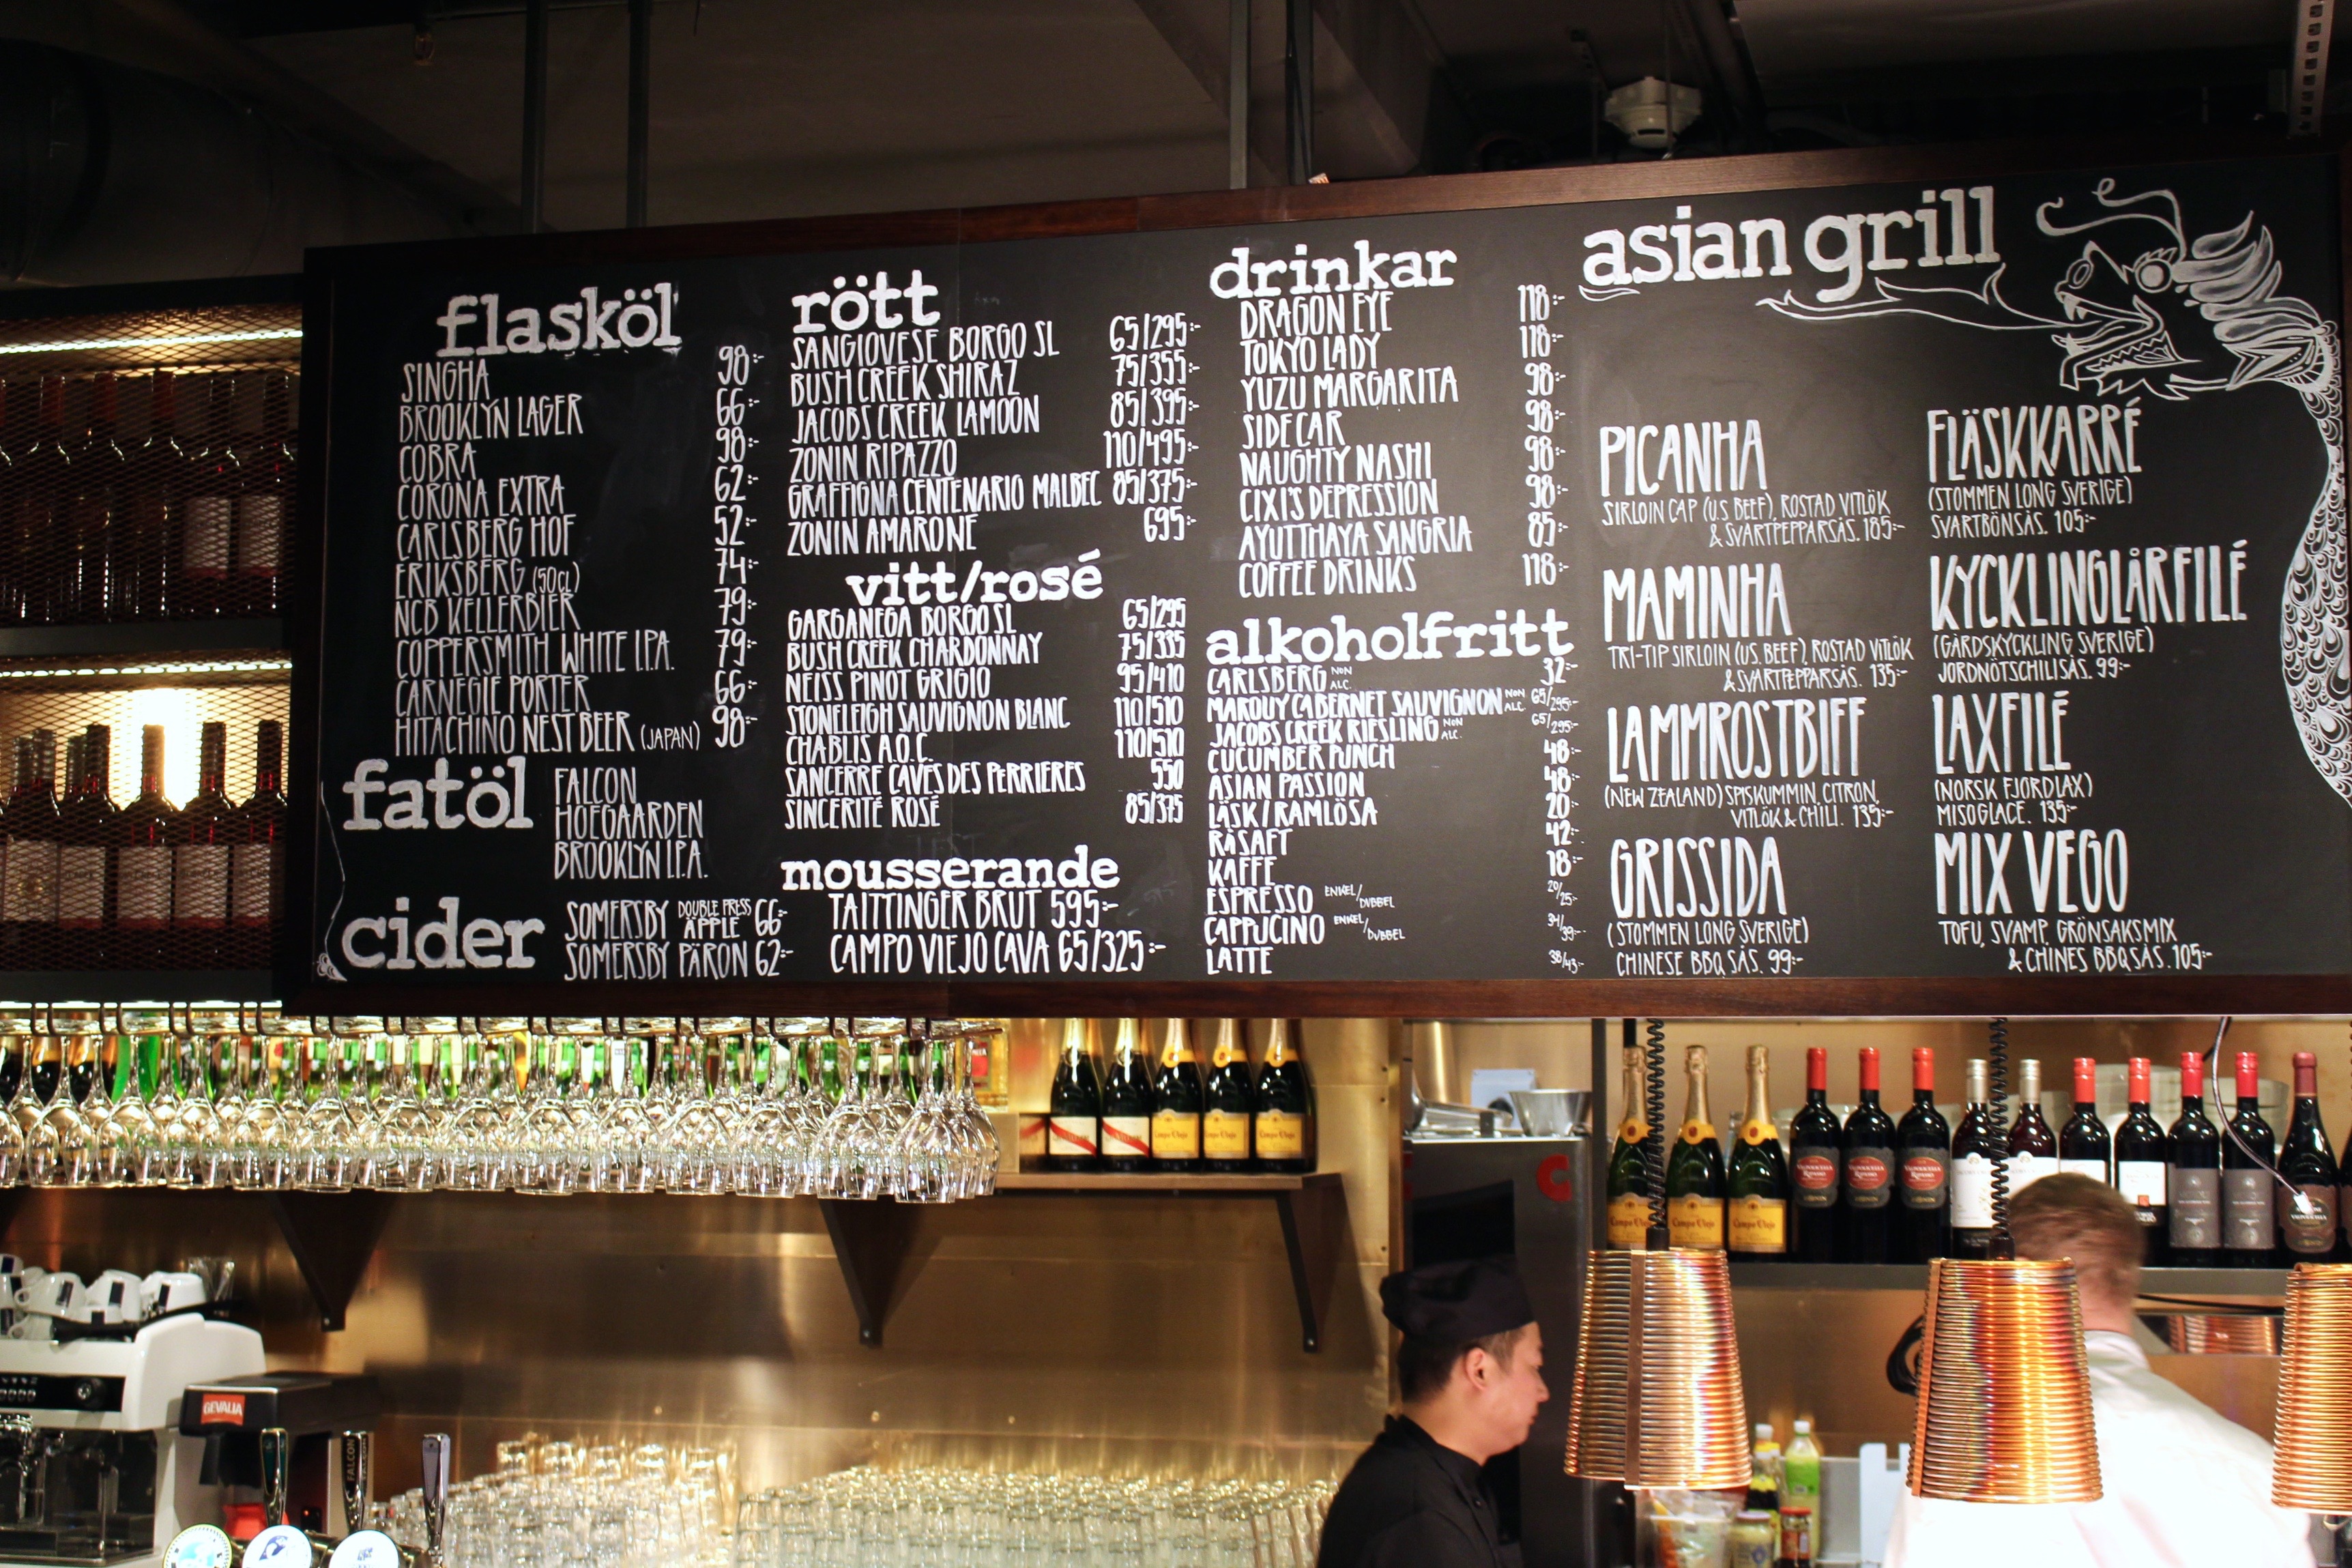 flasköl
SINGHA 98:-
BROOKLYN LAGER 66:-
COBRA 98:-
CORONA EXTRA 62:-
CARLSBERG HOF 52:-
ERIKSBERG (50CL) 74:-
NCB KELLERBIER 79:-
COPPERSMITH WHITE I.P.A. 79:-
CARNEGIE PORTER 66:-
HITACHINO NEST BEER (JAPAN) 98:-
fatöl
FALCON
HOEGAARDEN
BROOKLYN I.P.A.
cider
SOMERSBY DOUBLE PRESS ÄPPLE 66:-
SOMERSBY PÄRON 62:-
rött
SANGIOVESE BORGO SL 65/295:-
BUSH CREEK SHIRAZ 75/355:-
JACOBS CREEK LAMOON 85/395:-
ZONIN RIPAZZO 110/495:-
GRAFFIGNA CENTENARIO MALBEC 85/375:-
ZONIN AMARONE 695:-
vitt/rosé
GARGANEGA BORGO SL 65/295
BUSH CREEK CHARDONNAY 75/335
NEISS PINOT GRIGIO 95/410
STONELEIGH SAUVIGNON BLANC 110/510
CHABLIS A.O.C. 110/510
SANCERRE CAVES DES PERRIERES 550
SINCERITÉ ROSÉ 85/375
mousserande
TAITTINGER BRUT 595:-
CAMPO VIEJO CAVA 65/325:-
drinkar
DRAGON EYE 118:-
TOKYO LADY 118:-
YUZU MARGARITA 98:-
SIDECAR 98:-
NAUGHTY NASHI 98:-
CIXI'S DEPRESSION 98:-
AYUTTHAYA SANGRIA 85:-
COFFEE DRINKS 118:-
alkoholfritt
CARLSBERG NON ALC. 32:-
MAROUY CABERNET SAUVIGNON NON ALC. 65/295:-
JACOBS CREEK RIESLING NON ALC. 65/295:-
CUCUMBER PUNCH 48:-
ASIAN PASSION 48:-
LÄSK/RAMLÖSA 20:-
RÅSAFT 42:-
KAFFE 18:-
ESPRESSO ENKEL/DUBBEL 20/25:-
CAPPUCINO ENKEL/DUBBEL 34/39:-
LATTE 38/43:-
asian grill
PICANHA
SIRLOIN CAP (U.S BEEF), ROSTAD VITLÖK
& SVARTPEPPARSÅS. 185:-
MAMINHA
TRI-TIP SIRLOIN (U.S. BEEF), ROSTAD VITLÖK
& SVARTPEPPARSÅS. 135:-
LAMMROSTBIFF
(NEW ZEALAND) SPISKUMMIN, CITRON,
VITLÖK & CHILI. 135:-
GRISSIDA
(STOMMEN LONG SVERIGE)
CHINESE BBQ SÅS. 99:-
FLÄSKKARRÉ
(STOMMEN LONG SVERIGE)
SVARTBÖNSÅS. 105:-
KYCKLINGLÅRFILÉ
(GÅRDSKYCKLING SVERIGE)
JORDNÖTSCHILISÅS. 99:-
LAXFILÉ
(NORSK FJORDLAX)
MISOGLACE. 135:-
MIX VEGO
TOFU, SVAMP, GRÖNSAKSMIX
& CHINES BBQ SÅS. 105:-
Campo Viejo
Campo Viejo
Campo Viejo
Campo Viejo
Campo Viejo
Campo Viejo
GEVALIA
FALCON